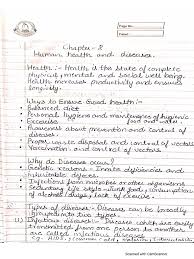 Page No.:
Date:
Chapter - 8
Human health and diseases.
Health :- Health is the state of complete
physical, mental and social well being.
Health increases productivity and ensures
longevity.
Ways to Ensure Good health:-
Balanced diet
Personal hygiene and maintenance of hygienic food
Exercise
Awareness about prevention and control of
diseases
Proper waste disposal and control of vectors
Vaccination and control of vectors
Why do Disease occur?
Genetic reasons - Innate deficiencies and
inherited defects.
Infections from microbes or other organisms
Sedentary life style - Junk food, consumption
of alcohol, drugs, less exercise
Types of disease:- Diseases can be broadly
grouped into two types
Infectious disease:- Diseases which are easily
transmitted from one person to another
are called infectious diseases.
eg. AIDS, Common cold, Malaria, Tuberculosis
Scanned with CamScanner